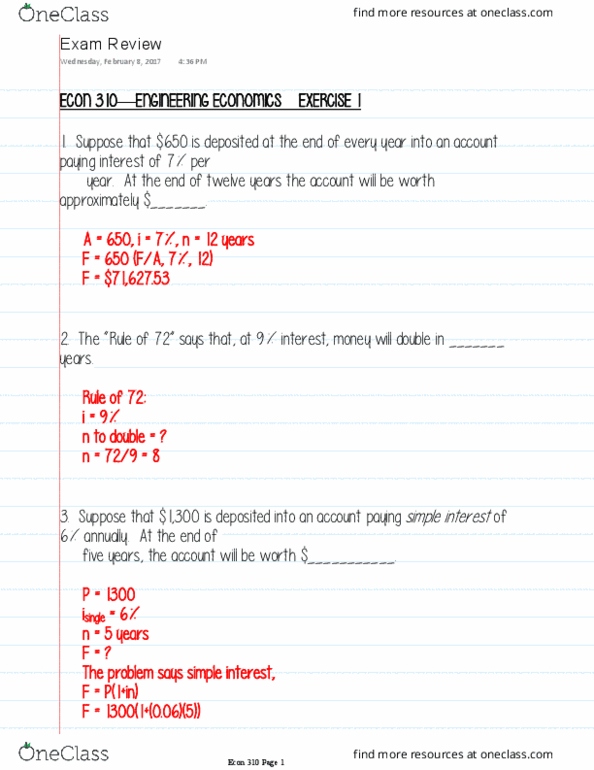 OneClass
find more resources at oneclass.com
Exam Review
Wednesday, February 8, 2017 4:36 PM
ECON 310—ENGINEERING ECONOMICS EXERCISE 1
1. Suppose that $650 is deposited at the end of every year into an account
paying interest of 7% per
year. At the end of twelve years the account will be worth
approximately $_______.
A = 650, i = 7%, n = 12 years
F = 650 (F/A, 7%, 12)
F = $71,627.53
2. The "Rule of 72" says that, at 9% interest, money will double in _______
years.
Rule of 72:
i = 9%
n to double = ?
n = 72/9 = 8
3. Suppose that $1,300 is deposited into an account paying simple interest of
6% annually. At the end of
five years, the account will be worth $___________.
P = 1300
isingle = 6%
n = 5 years
F = ?
The problem says simple interest,
F = P(1+in)
F = 1300(1+(0.06)(5))
OneClass
Econ 310 Page 1
find more resources at oneclass.com